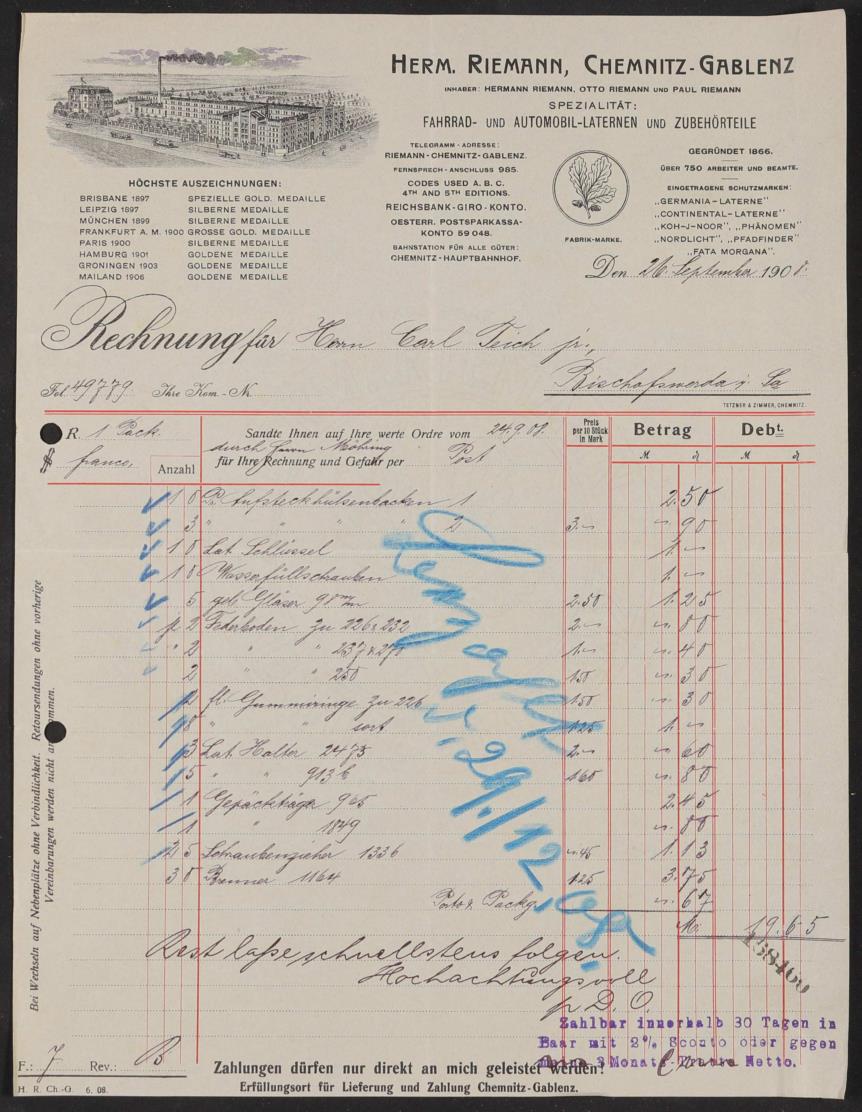 HERM. RIEMANN, CHEMNITZ-GABLENZ
INHABER: HERMANN RIEMANN, OTTO RIEMANN UND PAUL RIEMANN
SPEZIALITÄT:
FAHRRAD- UND AUTOMOBIL-LATERNEN UND ZUBEHÖRTEILE
TELEGRAMM-ADRESSE:
RIEMANN-CHEMNITZ-GABLENZ.
FERNSPRECH-ANSCHLUSS 985.
CODES USED A. B. C.
4TH AND 5TH EDITIONS.
REICHSBANK-GIRO-KONTO.
OESTERR. POSTSPARKASSA-
KONTO 59048.
BAHNSTATION FÜR ALLE GÜTER:
CHEMNITZ-HAUPTBAHNHOF.
FABRIK-MARKE.
GEGRÜNDET 1866.
ÜBER 750 ARBEITER UND BEAMTE.
EINGETRAGENE SCHUTZMARKEN:
„GERMANIA-LATERNE"
„CONTINENTAL-LATERNE"
„KOH-J-NOOR", „PHÄNOMEN"
„NORDLICHT", „PFADFINDER"
„FATA MORGANA".
HÖCHSTE AUSZEICHNUNGEN:
BRISBANE 1897 SPEZIELLE GOLD. MEDAILLE
LEIPZIG 1897 SILBERNE MEDAILLE
MÜNCHEN 1899 SILBERNE MEDAILLE
FRANKFURT A. M. 1900 GROSSE GOLD. MEDAILLE
PARIS 1900 SILBERNE MEDAILLE
HAMBURG 1901 GOLDENE MEDAILLE
GRONINGEN 1903 GOLDENE MEDAILLE
MAILAND 1906 GOLDENE MEDAILLE
Den 26. September 1908.
Rechnung für Herrn Carl Teich jr.,
Bischofswerda i. Sa
Fol. 49779 Ihre Kom.-N.
TETZNER & ZIMMER, CHEMNITZ.
R. 1 Pack.
franco,
Anzahl
Sandte Ihnen auf Ihre werte Ordre vom 24.9.08.
durch Herrn Möhring
für Ihre Rechnung und Gefahr per Post
Preis per 10 Stück in Mark
Betrag
Debt.
M ₰ M ₰
10 Aufsteckhülsenbacken 1 2.50
3 " " " " 2 3.- -.90
10 Lat. Schlüssel 1.-
10 Wasserfüllschrauben 1.-
5 gelb. Gläser 98 mm 2.50 1.25
2 Federboden zu 226 & 232 2.- -.80
" 2 " " 237 & 270 1.- -.40
2 " " 250 150 -.30
2 fl. Gummiringe zu 226 150 -.30
8 " " sort 125 1.-
3 Lat. Halter 2475 2.- -.60
5 " " 913 b 160 -.80
1 Gepäckträger 965 2.45
1 " 1849 -.80
25 Schraubenzieher 1336 -.45 1.13
30 Brenner 1164 125 3.75
Porto & Packg. -.67
M. 19.65
29./12.08.
Rest lasse schnellstens folgen.
Hochachtungsvoll
p D. O.
138460
Zahlbar innerhalb 30 Tagen in
Baar mit 2% Sconto oder gegen
3 Monats Netto.
Bei Wechseln auf Nebenplätze ohne Verbindlichkeit. Retoursendungen ohne vorherige
Vereinbarungen werden nicht angenommen.
F.: 7 Rev.: B
Zahlungen dürfen nur direkt an mich geleistet werden!
Erfüllungsort für Lieferung und Zahlung Chemnitz-Gablenz.
H. R. Ch.-G. 6. 08.